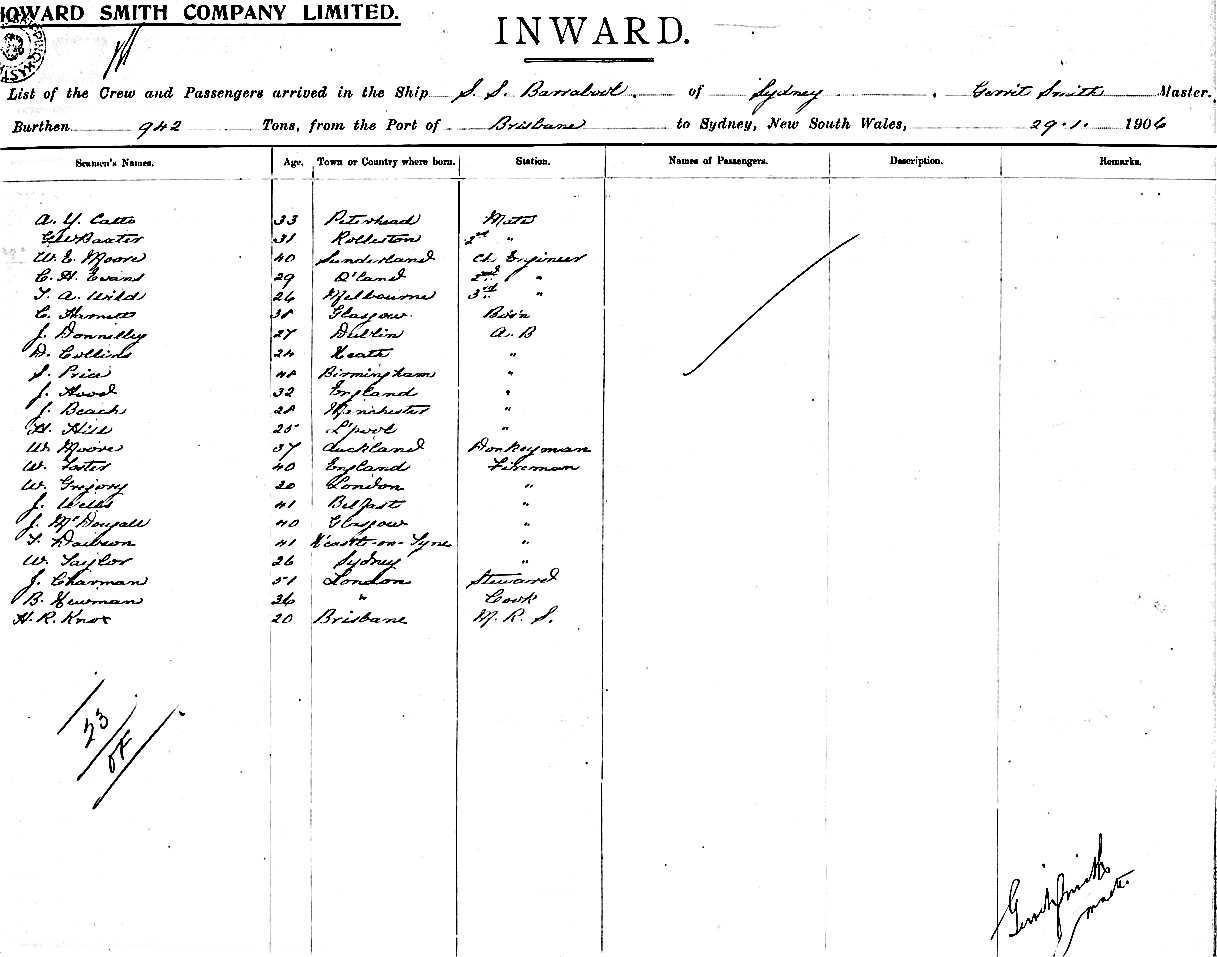 HOWARD SMITH COMPANY LIMITED.
INWARD.
List of the Crew and Passengers arrived in the Ship S. S. Barrabool. of Sydney, Gerrit Smith Master.
Burthen 942 Tons, from the Port of Brisbane to Sydney, New South Wales, 29.1. 1906
Seamen's Names. Age. Town or Country where born. Station. Names of Passengers. Description. Remarks.
A. Y. Catto 33 Peterhead Mate
G W Baxter 31 Rolleston 2nd "
W. E. Moore 40 Sunderland Ch Engineer
C. H. Evans 29 Q'land 2nd. "
T. A. Wild 26 Melbourne 3rd. "
C. 38 Glasgow. Bos'n
J. Donnelly 27 Dublin A. B
D. Collins 24 "
S. Price 48 Birmingham "
J. Hood 32 England "
J. Beach 28 Manchester "
H. Hill 25 L'pool "
W. Moore 37 Auckland Donkeyman
W. Foster 40 England Fireman
W. Gregory 20 London "
J. Wells 41 Belfast "
J. McDougall 40 Glasgow "
T. Dawson 41 N'castle-on-Tyne "
W. Taylor 26 Sydney "
J. Charman 51 London Steward
B. Newman 36 " Cook
H. R. Knox 20 Brisbane M. R. S.
23
Gerrit Smith
Master.